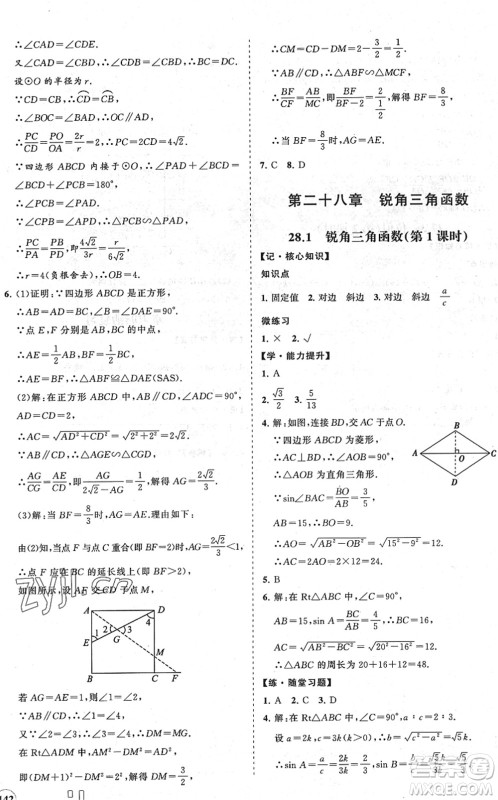 ∴∠CAD=∠CDE.
又∴∠CAD=∠CBD,∴∠CDE=∠CBD,
设⊙O 的半径为 r.
∵CD=CB,∴CD=CB,
∴∠BOC=∠BAD,∴OC∥AD,
∴PC/CD=PO/OA=2r/r=2,∴PC=2CD=4√2.
∵四边形 ABCD 内接于⊙O,
∴PC/PO=PA/PD,即4√2/3r=r/6√2,
∴r=4(负根舍去),∴OB=4.
6. (1)证明:∵四边形 ABCD 是正方形,
∴AB=AD,∠1=∠BAD=90°.
∵点 E,F 分别是 AB,BC 的中点,
∴AE=1/2AB,BF=1/2BC,∴AE=BF,
∴△ABF≌△DAE(SAS).
(2)解:在正方形 ABCD 中,
AB∥CD,∠ADC=90°,AD=CD=2,
∴AC=√(AD²+CD²)=√(2²+2²)=2√2.
∵AB∥CD,∴△AGE∽△CGD,
∴AG/CG=AE/CD,即AG/(2√2-AG)=1/2,∴AG=2√2/3.
(3)解:当 BF=8/3时,AG=AE.理由如下:
由(2)知,当点 F 与点 C 重合(即 BF=2)时,AG=2√2/3<1,
∴点 F 应在 BC 的延长线上(即 BF>2),
如图所示,设 AF 交 CD 于点 M,
A D
1 2 3 4
E G
M
B C F
若 AG=AE=1,则有∠1=∠2.
∵AB∥CD,∴∠1=∠4.
又∵∠2=∠3,∴∠3=∠4,∴DM=MG.
在 Rt△ADM 中,AM²-DM²=AD²,
即(DM+1)²-DM²=2²,解得 DM=3/2,
∴CM=CD-DM=2-3/2=1/2.
∵AB∥CD,∴△ABF∽△MCF,
∴BF/CF=AB/MC,即BF/(BF-2)=2/(1/2),解得 BF=8/3,
∴当 BF=8/3时,AG=AE.
7. C 8. D
第二十八章 锐角三角函数
28.1 锐角三角函数(第 1 课时)
【记·核心知识】
知识点
1. 固定值 2. 对边 斜边 对边 斜边 a/c
微练习
1. × 2. √
【学·能力提升】
1. A
2. √3/2 3. 5/13
4. 解:如图,连接 BD,交 AC 于点 O.
∵四边形 ABCD 为菱形,
∴∠AOB=90°,AC=2AO,
∴△AOB 为直角三角形.
∵sin∠BAC=BO/AB=3/5,
AB=15,∴BO=9.
B
A O C
D
∴AO=√(AB²-OB²)=√(15²-9²)=12,
∴AC=2AO=2×12=24.
5. B
6. 解:在 Rt△ABC 中,∠C=90°,
∵AB=20,sin A=BC/AB=4/5,∴BC=16.
∴AC=√(AB²-BC²)=√(20²-16²)=12,
∴△ABC 的周长为 20+16+12=48.
【练·随堂习题】
1. A 2. C 3. D
4. 解:在 Rt△ABC 中,∠C=90°,
设 a=2k,b=3k,∴c=√(a²+b²)=√13k,
∴sin A=a/c=2k/
zyjl.cn
答案圈
MXQE.COM